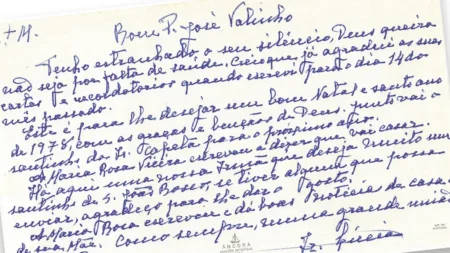 + M.
Bom P. José Valinho
Tenho estranhado o seu silêncio, Deus queira
não seja por falta de saúde, creio que já agradeci as suas
cartas e recordatorios quando escrevi para o dia 14 do
mês passado.
Este é para lhe desejar um bom Natal e santo ano
de 1978, com as graças e bençãos de Deus. junto vai o
santinho da Capela para o proximo ano.
A Maria Rosa Vieira escreveu a dizer que vai casar.
Há aqui uma nossa Irmã que deseja muito um
santinho de S. João Bosco, se tiver algum que possa
enviar, agradeço para lhe dar o gosto.
A Maria Rosa escreveu e dá boas noticia de casa
de sua Mãe. Como sempre, numa grande união
Ir. Lúcia
ÂNCORA